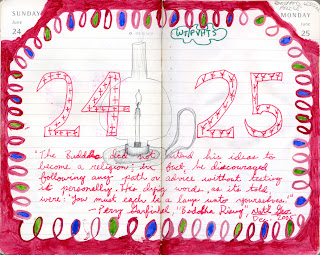 SUNDAY
MONDAY
JUNE
24
JUNE
25
WSPVHTS
24 25
"The Buddha did not intend his ideas to
become a religion; in fact, he discouraged
following any path or advice without testing
it personally. His dying words, as it's told
were: 'You must each be a lamp unto yourselves.'"
- Perry Garfinkel, "Buddha Rising", Natl. Geo.
Dec. 2005